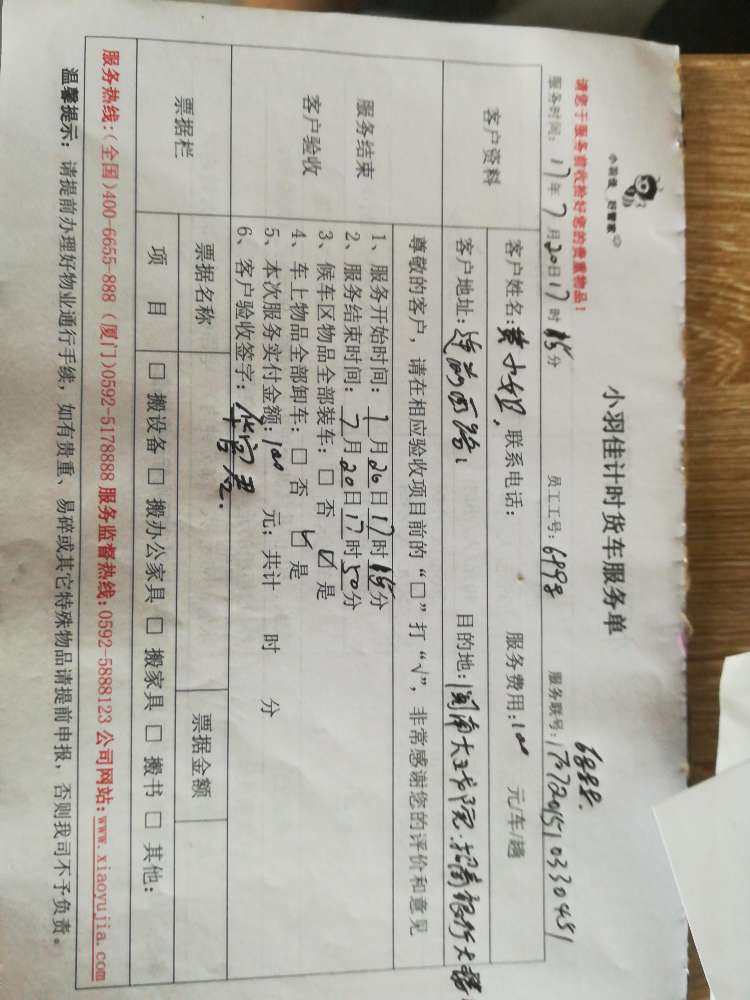 小羽佳 好管家
小羽佳计时货车服务单
请您于服务前收拾好您的贵重物品!
6888.
服务时间: 17年7月20日17时15分 员工工号: 6898 服务联号: 1707201510330451
客户资料
客户姓名: 黄小姐. 联系电话: 服务费用: 100 元/车/趟
客户地址: 莲前西路 目的地: 闽南大厦 招商银行大楼
尊敬的客户,请在相应验收项目前的“□”打“√”,非常感谢您的评价和意见
服务结束
客户验收
1、服务开始时间: 7月20日17时15分
2、服务结束时间: 7月20日17时50分
3、候车区物品全部装车: □ 否 ☑ 是
4、车上物品全部卸车: □ 否 ☑ 是
5、本次服务实付金额: 100 元; 共计 时 分
6、客户验收签字:
票据栏
票据名称 票据金额
项 目 □ 搬设备 □ 搬办公家具 □ 搬家具 □ 搬书 □ 其他:
服务热线:(全国)400-6655-888 (厦门)0592-5178888 服务监督热线:0592-5888123 公司网站:www.xiaoyujia.com
温馨提示: 请提前办理好物业通行手续, 如有贵重、易碎或其它特殊物品请提前申报, 否则我司不予负责。